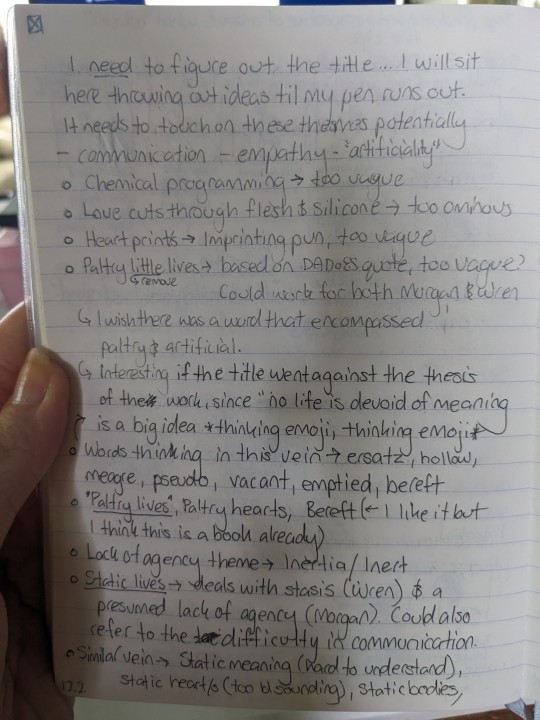 I need to figure out the title... I will sit
here throwing out ideas til my pen runs out.
It needs to touch on these themes potentially
- communication - empathy - "artificiality"
o Chemical programming → too vague
o Love cuts through flesh & silicone → too ominous
o Heartprints → Imprinting pun, too vague
o Paltry little lives → based on DADoES quote, too vague?
↳ remove
Could work for both Morgan & Wren
↳ I wish there was a word that encompassed
paltry & artificial.
↳ Interesting if the title went against the thesis
of the work, since "no life is devoid of meaning
is a big idea *thinking emoji, thinking emoji*
o Words thinking in this vein → ersatz, hollow,
meagre, pseudo, vacant, emptied, bereft
o "Paltry lives", Paltry hearts, Bereft (← I like it but
I think this is a book already)
o Lack of agency theme → Inertia/Inert
o Static lives → deals with stasis (Wren) & a
presumed lack of agency (Morgan). Could also
refer to the difficulty in communication.
o Similar vein → Static meaning (hard to understand),
static heart/s (too bl sounding), static bodies,
122